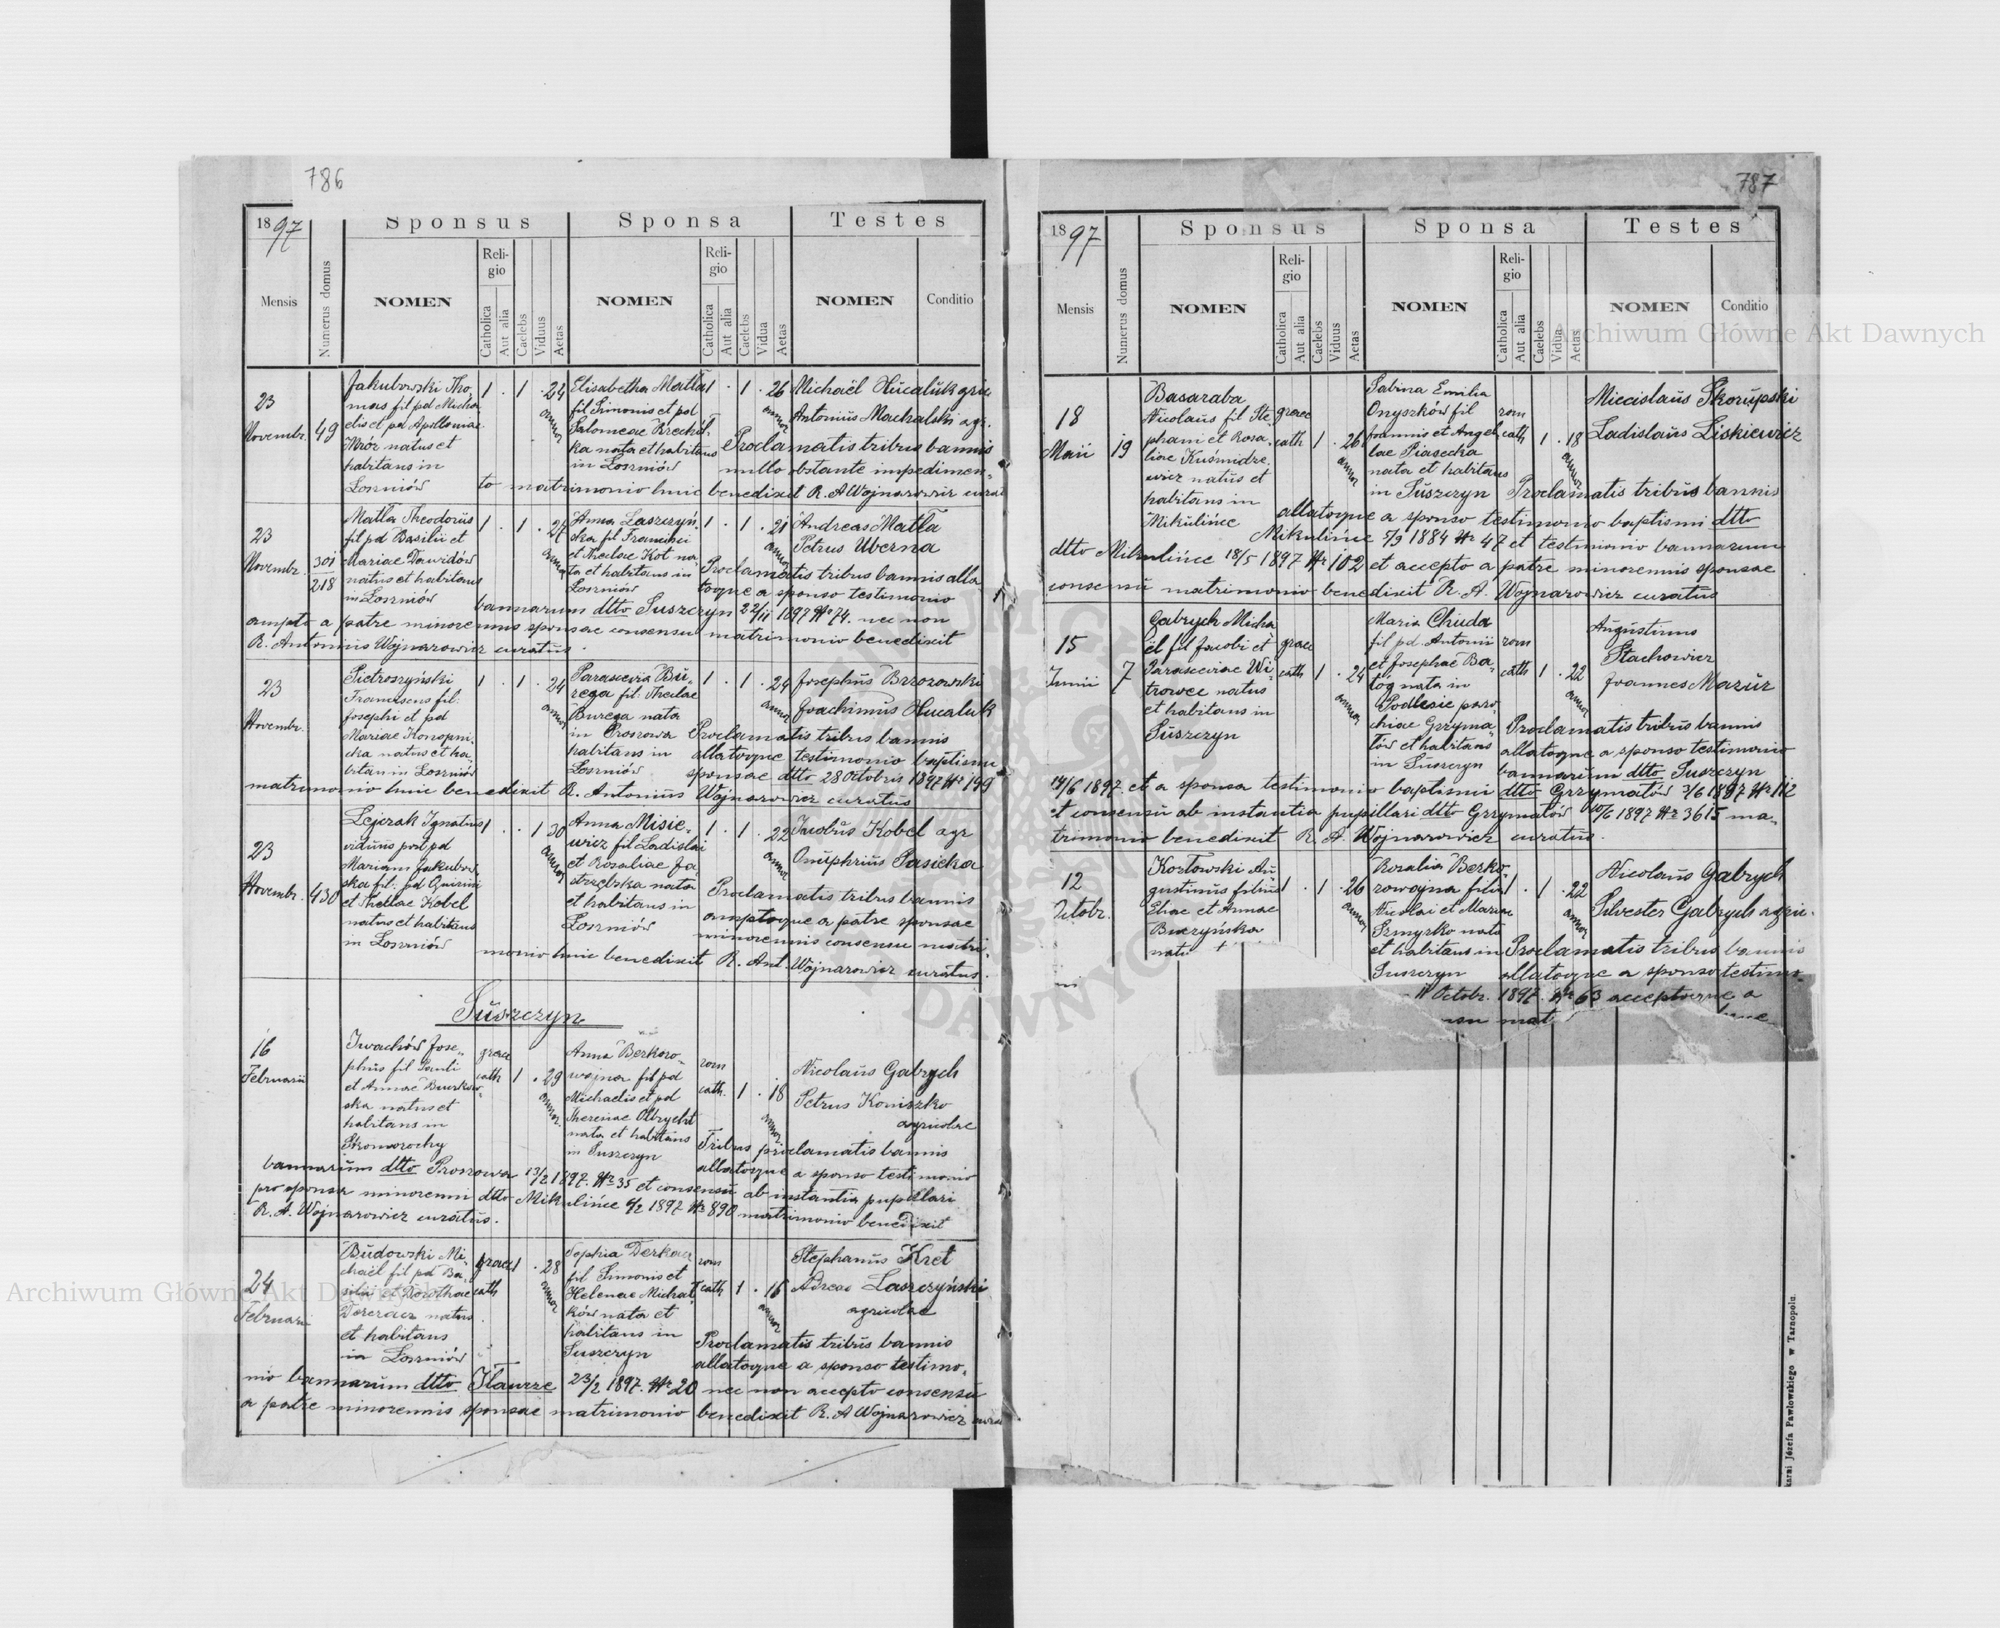 786
1897
Sponsus
Sponsa
Testes
Mensis
Numerus domus
NOMEN
Religio
Catholica
Aut alia
Caelebs
Viduus
Aetas
NOMEN
Religio
Catholica
Aut alia
Caelebs
Vidua
Aetas
NOMEN
Conditio
23
Novembr.
49
Jakubowski Tho-
mas fil pd Micha-
elis et pd Apolloniae
Mróz natus et
habitans in
Łoszniów
1 . 1 . 24
annor
Elisabetha Matla
fil Simonis et pd
Salomeae Krechól-
ka nata et habitans
in Łoszniów
1 . 1 . 26
annor
Michaël Hucaluk
Antonius Machalski agr.
Proclamatis tribus bannis
nullo obstante impedimen-
to matrimonio huic benedixit R. A Wojnarowicz
23
Novembr.
301
218
Matla Theodorus
fil pd Basilii et
Mariae Dawidów
natus et habitans
in Łoszniów
1 . 1 . 27
annor
Anna Laszczyń-
ska fil Francisci
et Theclae Kot na-
ta et habitans in
Łoszniów
1 . 1 . 21
annor
Andreas Matla
Petrus Uberna
Proclamatis tribus bannis alla
toque a sponso testimonio
bannarum dtto Suszczyn 22/11 1897 Nr 74. nec non
a patre minorennis sponsae consensu matrimonio benedixit
R. Antonius Wojnarowicz curatus.
23
Novembr.
Pietroszyński
Franciscus fil:
Josephi et pd
Mariae Konopni-
cka natus et ha-
bitans in Łoszniów
1 . 1 . 24
annor
Parascevia Bu-
rega fil: Theclae
Burega nata
in Proszowa
habitans in
Łoszniów
1 . 1 . 24
annor
Josephus Brzozowski
Joachimus Hucaluk
Proclamatis tribus bannis
allatoque testimonio baptismi
sponsae dtto 28 Octobris 1897 Nr 199
matrimonio huic benedixit R. Antonius Wojnarowicz curatus
23
Novembr.
430
Lejczak Ignatius
viduus post pd
Mariam Jakubow-
ska fil: pd Quirini
et Theclae Kobel
natus et habitans
in Łoszniów
1 . . 1 30
annor
Anna Misie-
wicz fil Ladislai
et Rosaliae Ja-
strzębska nata
et habitans in
Łoszniów
1 . 1 . 22
annor
Jacobus Kobel agr
Onuphrius Pasieka
Proclamatis tribus bannis
a patre sponsae
minorennis consensu matri-
monio huic benedixit R. Ant. Wojnarowicz curatus.
Suszczyn
16
Februarii
Iwachów Jose-
phus fil Pauli
et Annae
ska natus et
habitans in
Skomorochy
graec
cath 1 . 29
annor.
Anna Berkoro-
wajna fil pd
Michaelis et pd
Theresiae Olbrycht
nata et habitans
in Suszczyn
rom
cath. 1 . 18
annor
Nicolaus Gabrych
Petrus Koniszko
agricolae
Tribus proclamatis bannis
allatoque a sponso testimonio
bannarum dtto Proszowa 13/2 1897. Nr 35 et consensu ab instantia pupillari
pro sponsa minorenni dtto Mikulińce 6/2 1897 Nr 890 matrimonio benedixit
R. A. Wojnarowicz curatus.
24
Februarii
Budowski Mi-
chaël fil pd Ba-
silii et Dorotheae
Derkacz natus
et habitans
in Łoszniów
graec 1 . 28
cath
annor
Sophia Derkacz
fil Simonis et
Helenae Michał-
ków nata et
habitans in
Suszczyn
rom
cath 1 . 16
annor
Stephanus Kret
Adreas Laszczyński
agricolae
Proclamatis tribus bannis
allatoque a sponso testimo-
nio bannarum dtto Iławcze 23/2 1897. Nr 20 nec non accepto consensu
a patre minorennis sponsae matrimonio benedixit R. A Wojnarowicz
787
1897
Sponsus
Sponsa
Testes
Mensis
Numerus domus
NOMEN
Religio
Catholica
Aut alia
Caelebs
Viduus
Aetas
NOMEN
Religio
Catholica
Aut alia
Caelebs
Vidua
Aetas
NOMEN
Conditio
18
Maii
19
Basaraba
Nicolaus fil Ste-
phani et Rosa-
liae Kuśmidro-
wicz natus et
habitans in
Mikulińce
graec
cath 1 . 26
annor
Sabina Emilia
Onyszków fil
Joannis et Ange-
lae Piasecka
nata et habitans
in Suszczyn
rom
cath 1 . 18
annor
Miecislaus Skorupski
Ladislaus Liskiewicz
Proclamatis tribus bannis
allatoque a sponso testimonio baptismi dtto
Mikulińce 5/9 1884 Nr 47 et testimonio bannarum
dtto Mikulińce 18/5 1897 Nr 102 et accepto a patre minorennis sponsae
consensu matrimonio benedixit R. A. Wojnarowicz curatus
15
Junii
7
Gabrych Micha-
ël fil Jacobi et
Parasceviae Wi-
trowec natus
et habitans in
Suszczyn
graec
cath 1 . 24
annor
Maria Chuda
fil pd Antonii
et Josephae Ba-
tóg nata in
Podlesie paro-
chiae Grzyma-
łów et habitans
in Suszczyn
rom
cath 1 . 22
annor
Augustinus
Stachowicz
Joannes Mazur
Proclamatis tribus bannis
allatoque a sponso testimonio
bannarum dtto Suszczyn
14/6 1897. et a sponsa testimonio baptismi dtto Grzymałów 3/6 1897 Nr 112
et consensu ab instantia pupillari dtto Grzymałów 10/6 1897 Nr 3615 ma-
trimonio benedixit R. A. Wojnarowicz curatus.
12
Octobr.
Kozłowski Au-
gustinus filius
Eliae et Annae
Buczyńska
natu
1 . 1 . 26
annor
Rosalia Berko-
rowajna filia
Nicolai et Mariae
Szmyrko nata
et habitans in
Suszczyn
1 . 1 . 22
annor
Nicolaus Gabrych
Silvester Gabrych agric.
Proclamatis tribus bannis
allatoque a sponso testimo
11 Octobr. 1897. Nr 63 acceptoque a
mat
karni Józefa Pawłowskiego w Tarnopolu.
Archiwum Główne Akt Dawnych
Archiwum Główne Akt Dawnych